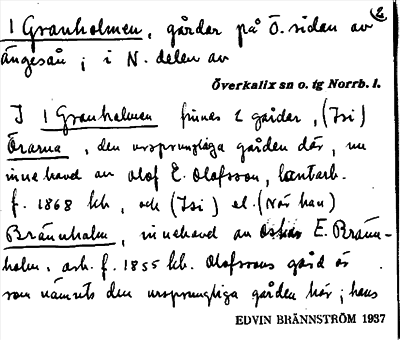 1 Granholmen, gårdar på Ö. sidan av
Ängesån; i N. delen av
Överkalix sn o. tg Norrb. l.
I 1 Granholmen finnes 2 gårdar, (Isi)
Örarna, den ursprungliga gården där, nu
innehavd av Olof E. Olofsson, lantarb.
f. 1868 kb, och (Isi) el. (När han)
Brännholm, innehavd av Oskar E. Bränn-
holm, arb. f. 1855 kb. Olofssons gård är
som nämnts den ursprungliga gården här; hans
EDVIN BRÄNNSTRÖM 1937